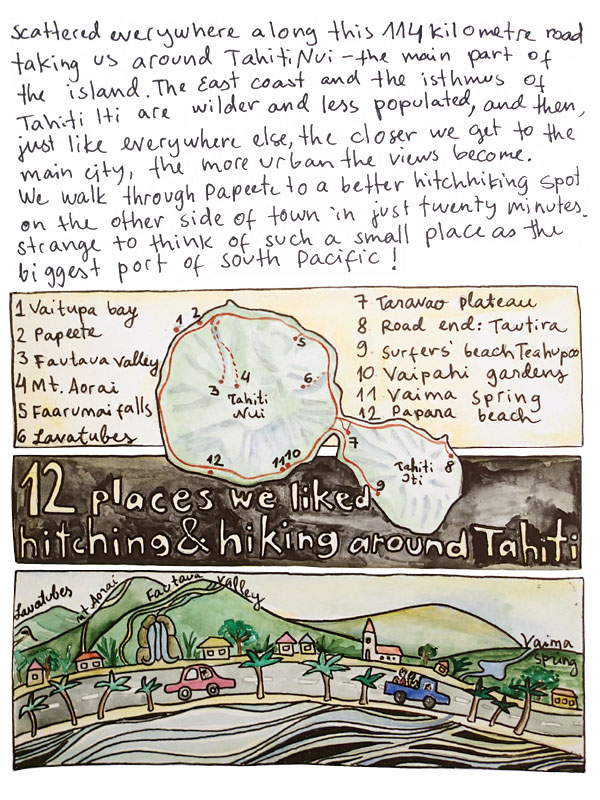 scattered everywhere along this 114 kilometre road
taking us around Tahiti Nui - the main part of
the island. The East coast and the isthmus of
Tahiti Iti are wilder and less populated, and then,
just like everywhere else, the closer we get to the
main city, the more urban the views become.
We walk through Papeete to a better hitchhiking spot
on the other side of town in just twenty minutes.
strange to think of such a small place as the
biggest port of South Pacific!
1 Vaitupa bay
2 Papeete
3 Fautaua Valley
4 Mt. Aorai
5 Faarumai falls
6 Lavatubes
7 Taravao plateau
8 Road end: Tautira
9 Surfers' beach Teahupoo
10 Vaipahi gardens
11 Vaima spring
12 Papara beach
1
2
3
4
5
6
Tahiti
Nui
7
8
9
11 10
12
Tahiti
Iti
12 places we liked
hitching & hiking around Tahiti
Lavatubes
Mt Aorai
Fautaua Valley
Vaima
spring